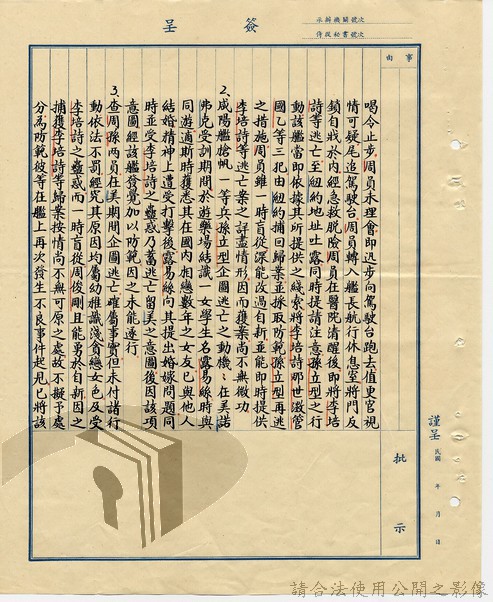 簽呈
承辦機關號次
侍從秘書號次
事由
批示
謹呈
民國 年 月 日
喝令止步周員未理會即迅步向駕駛台跑去值更官視
情可疑尾追駕駛台周員轉入艦長航行休息室將門反
鎖自戕於內經急救脫險周員在醫院清醒後即將李培
詩等逃亡至紐約地址吐露同時提請注意孫立型之行
動該艦當即依據其所提供之綫索將李培詩那世澂管
國乙等三犯由紐約捕回歸案並採取防範孫立型再逃
之措施周員雖一時盲從深能改過自新並能即時提供
李培詩等逃亡案之詳盡情形因而獲案尚不無微功
2、咸陽艦槍帆一等兵孫立型企圖逃亡之動機：在美諾
弗克受訓期間於遊樂場結識一女學生名露易絲時與
同遊適斯時獲悉其在國內相戀數年之女友已與他人
結婚精神上遭受打擊後露易絲向其提出婚嫁問題同
時並受李培詩之蠱惑乃蓄逃亡留美之意圖後因該項
意圖經該艦發覺加以防範因之未能遂行
3、查周孫兩員在美期間企圖逃亡確屬事實但未付諸行
動依法不罰經究其原因均屬幼稚識淺貪戀女色及受
李培詩之蠱惑而一時盲從周俊剛且能勇於自新因之
捕獲李培詩等歸案按情尚不無可原之處故不擬予處
分為防範彼等在艦上再次發生不良事件起見已將該
請合法使用公開之影像